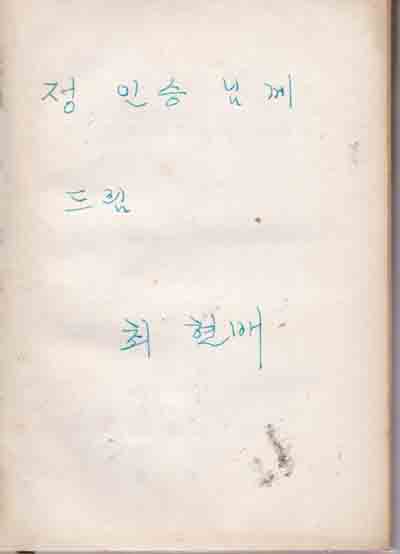 정 인승 님께
드림
최 현배